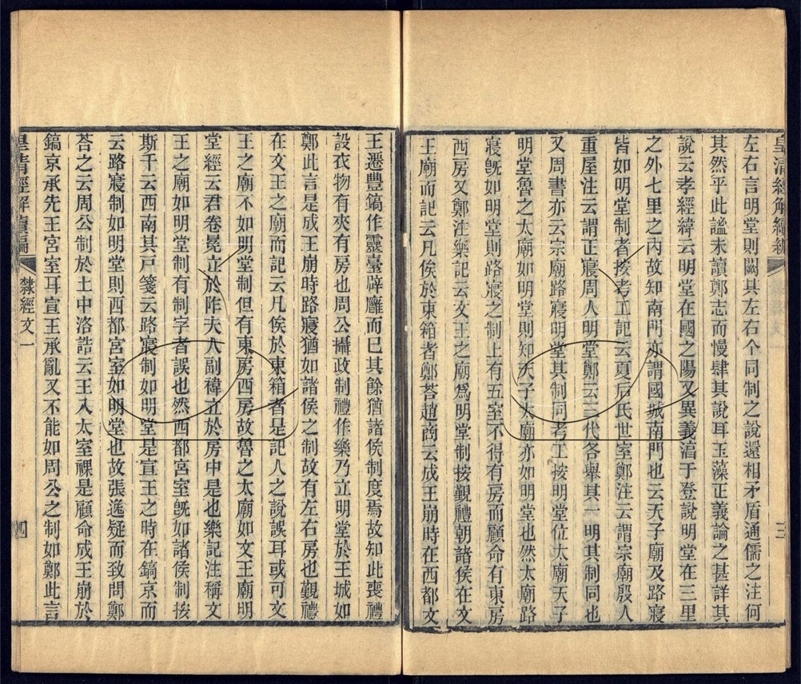 皇清經解續編
三
左右言明堂則闕其左右个同制之說還相矛盾通儒之注何
其然乎此謐未讀鄭志而慢肆其說耳玉藻正義論之甚詳其
說云孝經緯云明堂在國之陽又異義淳于登說明堂在三里
之外七里之內故知南門亦謂國城南門也云天子廟及路寢
皆如明堂制者按考工記云夏后氏世室鄭注云謂宗廟殷人
重屋注云謂正寢周人明堂鄭云三代各舉其一明其制同也
又周書亦云宗廟路寢明堂其制同考工按明堂位太廟天子
明堂魯之太廟如明堂則知天子太廟亦如明堂也然太廟路
寢旣如明堂則路寢之制上有五室不得有房而顧命有東房
西房又鄭注樂記云文王之廟爲明堂制按覲禮朝諸侯在文
王廟而記云凡俟於東箱者鄭荅趙商云成王崩時在西都文
王遷豐鎬作靈臺辟廱而已其餘猶諸侯制度焉故知此喪禮
設衣物有夾有房也周公攝政制禮作樂乃立明堂於王城如
鄭此言是成王崩時路寢猶如諸侯之制故有左右房也覲禮
在文王之廟而記云凡俟於東箱者是記人之說誤耳或可文
王之廟不如明堂制但有東房西房故魯之太廟如文王廟明
堂經云君卷冕立於阼夫人副褘立於房中是也樂記注稱文
王之廟如明堂制有制字者誤也然西都宮室旣如諸侯制按
斯干云西南其戶箋云路寢制如明堂是宣王之時在鎬京而
云路寢制如明堂則西都宮室如明堂也故張逸疑而致問鄭
荅之云周公制於土中洛誥云王入太室祼是顧命成王崩於
鎬京承先王宮室耳宣王承亂又不能如周公之制如鄭此言
皇清經解續編
隸經文一
四